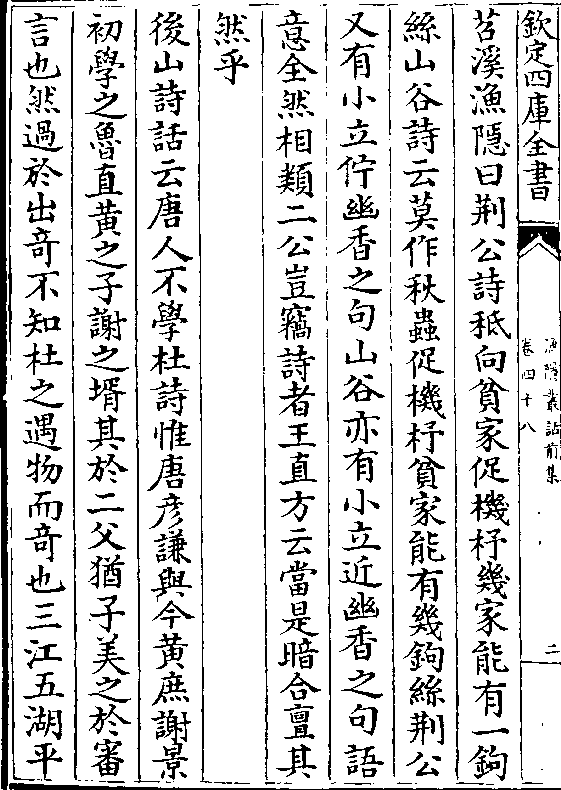 欽定四庫全書
漁隱叢話前集
卷四十八
二
苕溪漁隱曰荆公詩秪向貧家促機杼幾家能有一鉤
絲山谷詩云莫作秋蟲促機杼貧家能有幾鉤絲荆公
又有小立佇幽香之句山谷亦有小立近幽香之句語
意全然相類二公豈竊詩者王直方云當是暗合亶其
然乎
後山詩話云唐人不學杜詩惟唐彦謙與今黄庶謝景
初學之魯直黄之子謝之壻其於二父猶子美之於審
言也然過於出竒不知杜之遇物而竒也三江五湖平